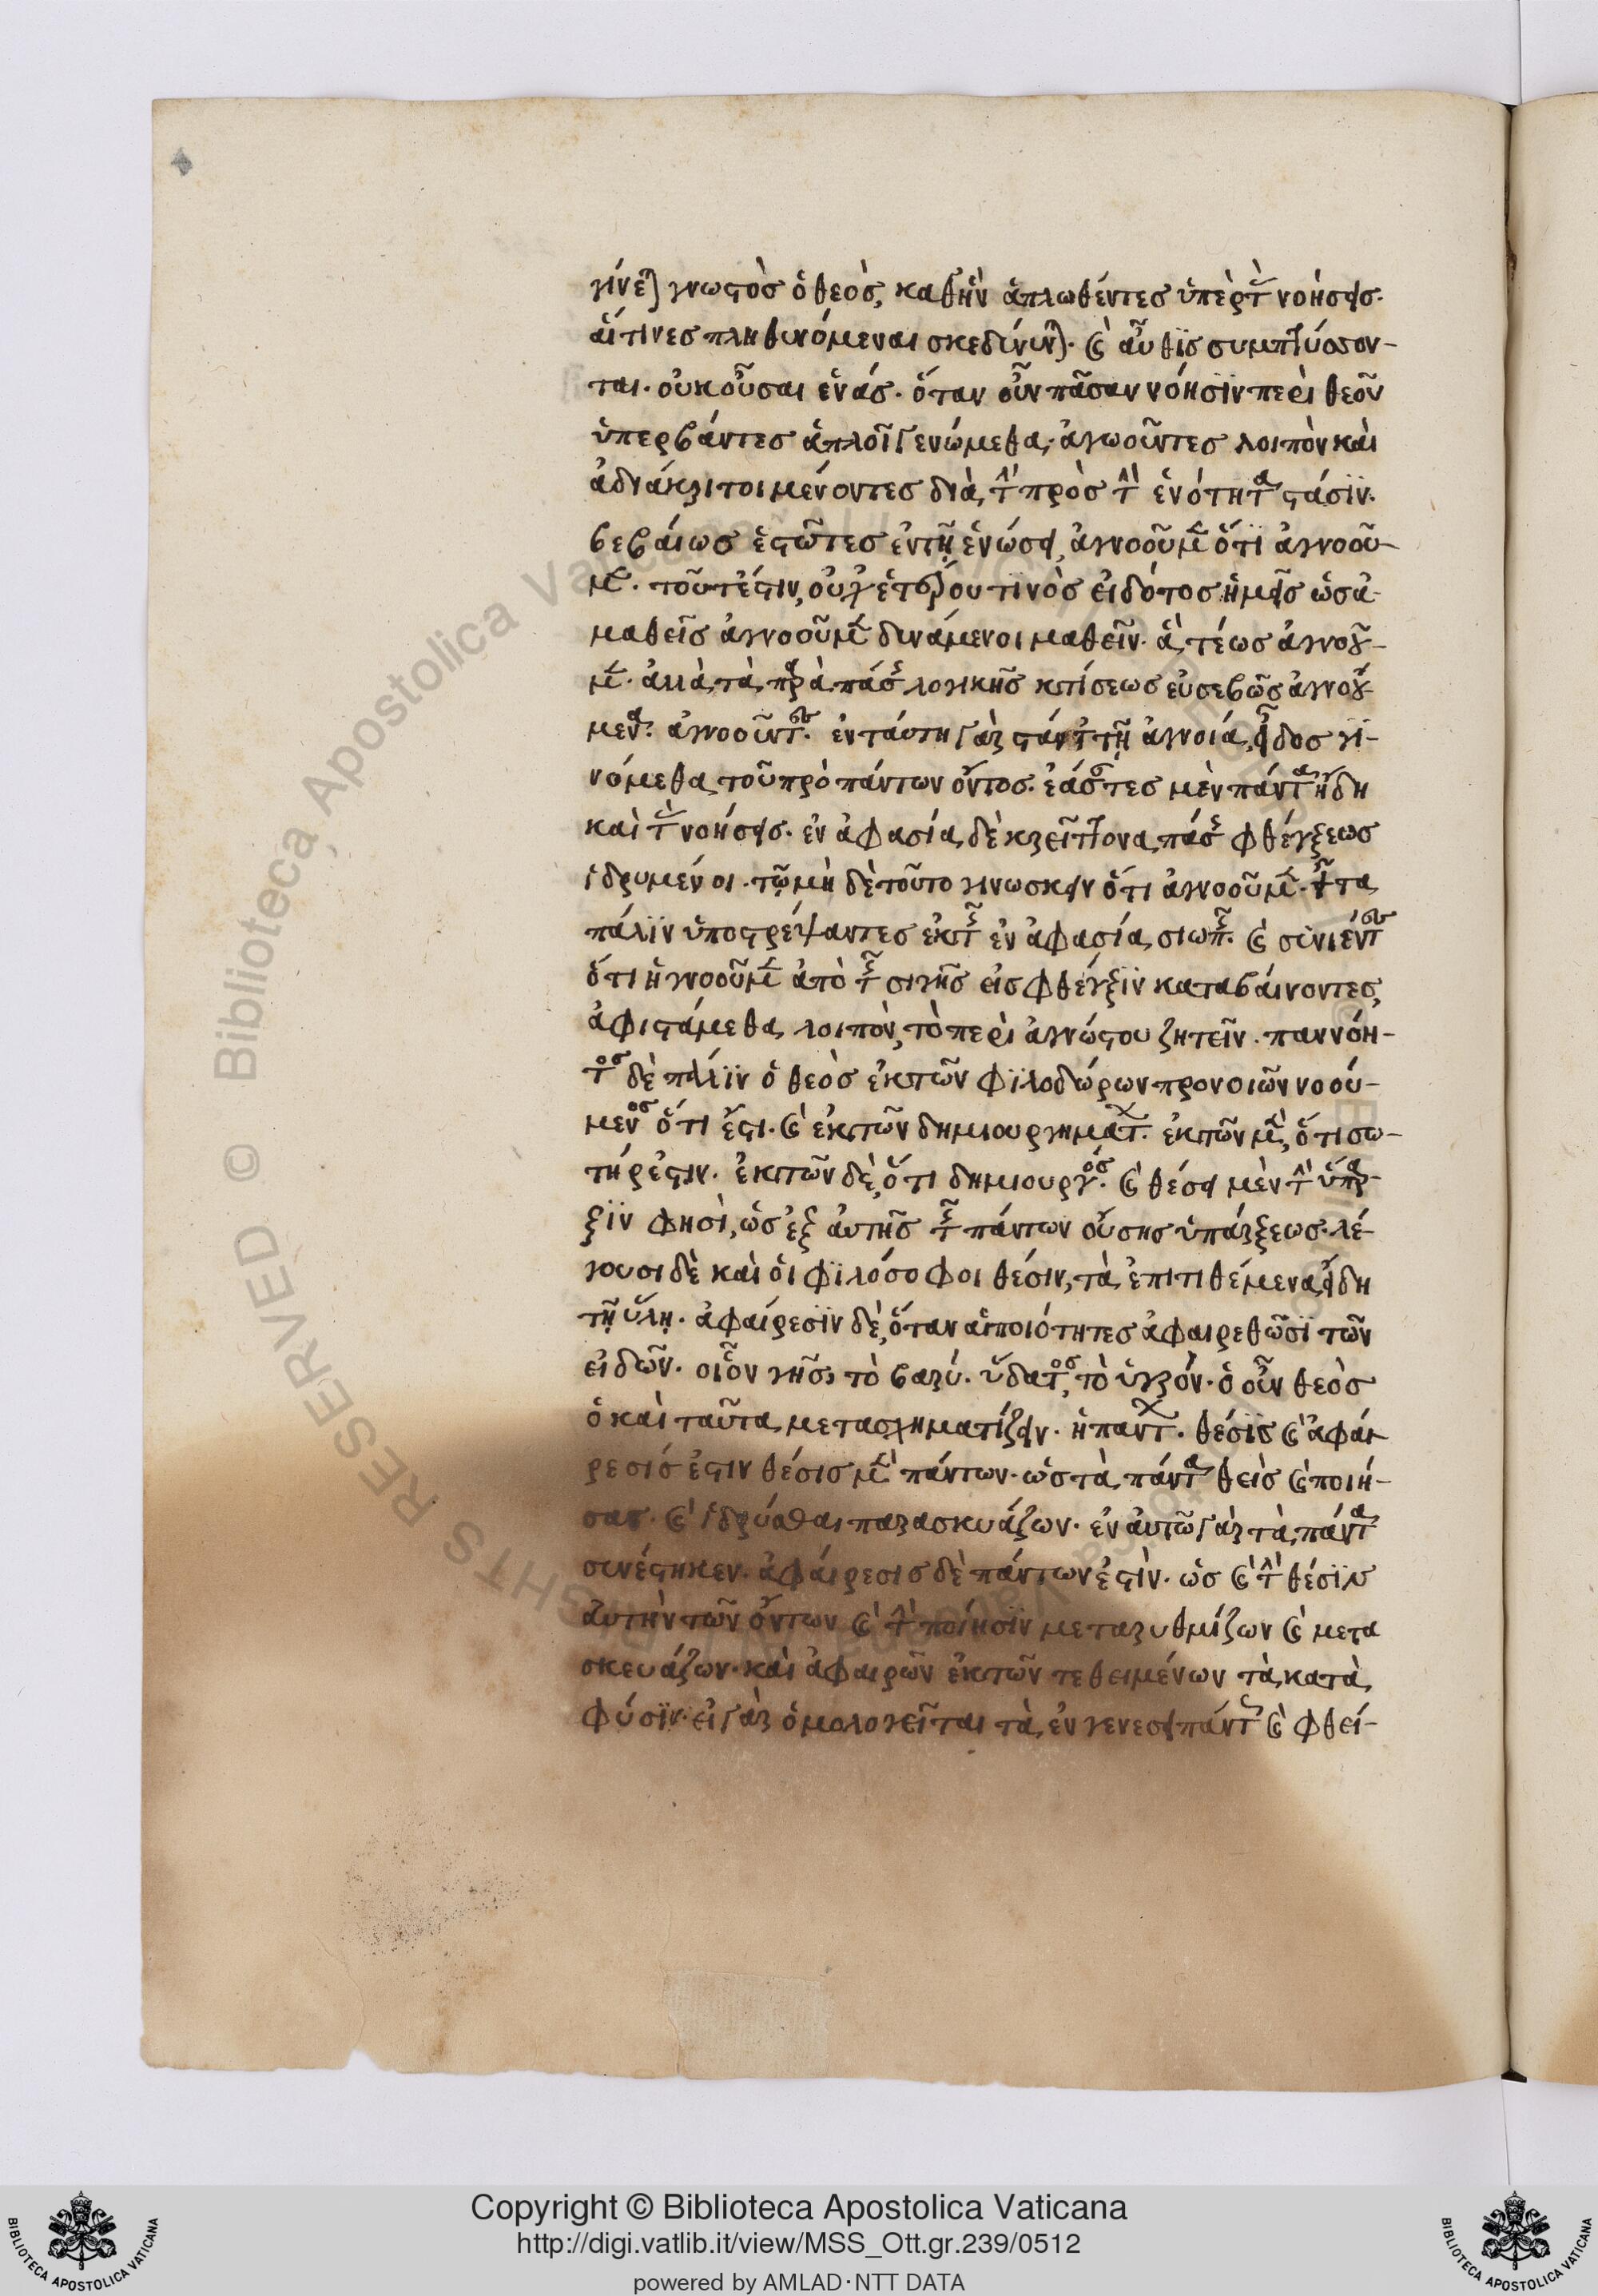 γίνεται γνωστὸς ὁ θεός, καθ' ἣν ἁπλωθέντες ὑπὲρ τὰς νοήσεις.
αἵτινες πληθυνόμεναι σκεδίνυνται. καὶ αὖθις συμπτύσσον-
ται. οὐκ οὖσαι ἑνάς. ὅταν οὖν πᾶσαν νόησϊν περὶ θεοῦ
ὑπερβάντες ἁπλοῖ γενώμεθα, ἀγνοοῦντες λοιπὸν καὶ
ἀδιάκριτοι μένοντες διὰ τὴν πρὸς τὴν ἑνότητα στάσϊν.
βεβαίως ἑστῶτες ἐν τῇ ἑνώσει, ἀγνοοῦμεν ὅτι ἀγνοοῦ-
μεν. τουτέστιν, οὐχ ἑτέρου τϊνὸς εἰδότος ἡμεῖς ὡς ἀ-
μαθεῖς ἀγνοοῦμεν δυνάμενοι μαθεῖν. ἃ τέως ἀγνοοῦ-
μεν. ἀλλὰ τὰ παρὰ πάσης λογικῆς κτίσεως εὐσεβῶς ἀγνοού-
μενα. ἀγνοοῦντες. ἐν ταύτῃ γὰρ στάντες τῇ ἀγνοίᾳ, εἶδος γϊ-
νόμεθα τοῦ πρὸ πάντων ὄντος. ἐάσαντες μὲν πάντα εἴδη
καὶ τὰς νοήσεις. ἐν ἀφασίᾳ δὲ κρείττονα πάσης φθέγξεως
ἱδρυμένοι. τῷ μὴ δὲ τοῦτο γινωσκειν ὅτι ἀγνοοῦμεν. εἶτα
πάλϊν ὑποστρέψαντες ἐκ τῆς ἐν ἀφασίᾳ σιωπῆς. καὶ συνιέντες
ὅτι ἠγνοοῦμεν ἀπὸ τῆς σιγῆς εἰς φθέγξϊν καταβαίνοντες,
ἀφιστάμεθα λοιπὸν, τὸ περὶ ἀγνώστου ζητεῖν. παννόη-
τος δὲ πάλϊν ὁ θεὸς ἐκ τῶν φϊλοδώρων προνοιῶν νοού-
μενος ὅτι ἔστι. καὶ ἐκ τῶν δημιουργημάτων. ἐκ τῶν μὲν, ὅτι σω-
τήρ ἐστιν. ἐκ τῶν δὲ, ὅτι δημιουργός. καὶ θέσει μὲν τὴν ὕπαρ-
ξϊν φησὶ, ὡς ἐξ αὐτῆς τῆς πάντων οὔσης ὑπάρξεως. λέ-
γουσι δὲ καὶ οἱ φϊλόσοφοι θέσιν, τὰ ἐπιτιθέμενα εἴδη
τῇ ὕλῃ. ἀφαίρεσϊν δὲ, ὅταν αἱ ποιότητες ἀφαιρεθῶσϊ τῶν
εἰδῶν. οἷον γῆς τὸ βαρύ. ὕδατος, τὸ ὑγρόν. ὁ οὖν θεὸς
ὁ καὶ ταῦτα μετασχηματίζειν. ἡ πάντων. θέσϊς καὶ ἀφαί-
ρεσίς ἐστιν θέσις μὲν πάντων. ὡς τὰ πάντα θεὶς καὶ ποιή-
σας. καὶ ἱδρύσθαι παρασκευάζων. ἐν αὐτῷ γὰρ τὰ πάντα
συνέστηκεν. ἀφαίρεσις δὲ πάντων ἐστὶν. ὡς καὶ τὴν θέσϊν
αὐτὴν τῶν ὄντων καὶ τὴν ποίησϊν μεταρυθμίζων καὶ μετα
σκευάζων. καὶ ἀφαιρῶν ἐκ τῶν τεθειμένων τὰ κατὰ
φύσϊν. εἰ γὰρ ὁμολογεῖται τὰ ἐν γενεσει πάντα καὶ φθεί-
Biblioteca Apostolica Vaticana
RIGHTS RESERVED ©
Copyright © Biblioteca Apostolica Vaticana
http://digi.vatlib.it/view/MSS_Ott.gr.239/0512
powered by AMLAD·NTT DATA
BIBLIOTECA APOSTOLICA VATICANA
BIBLIOTECA APOSTOLICA VATICANA